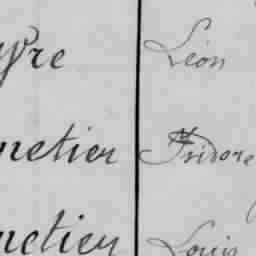 yre Léon
netier Isidore
netier Louis